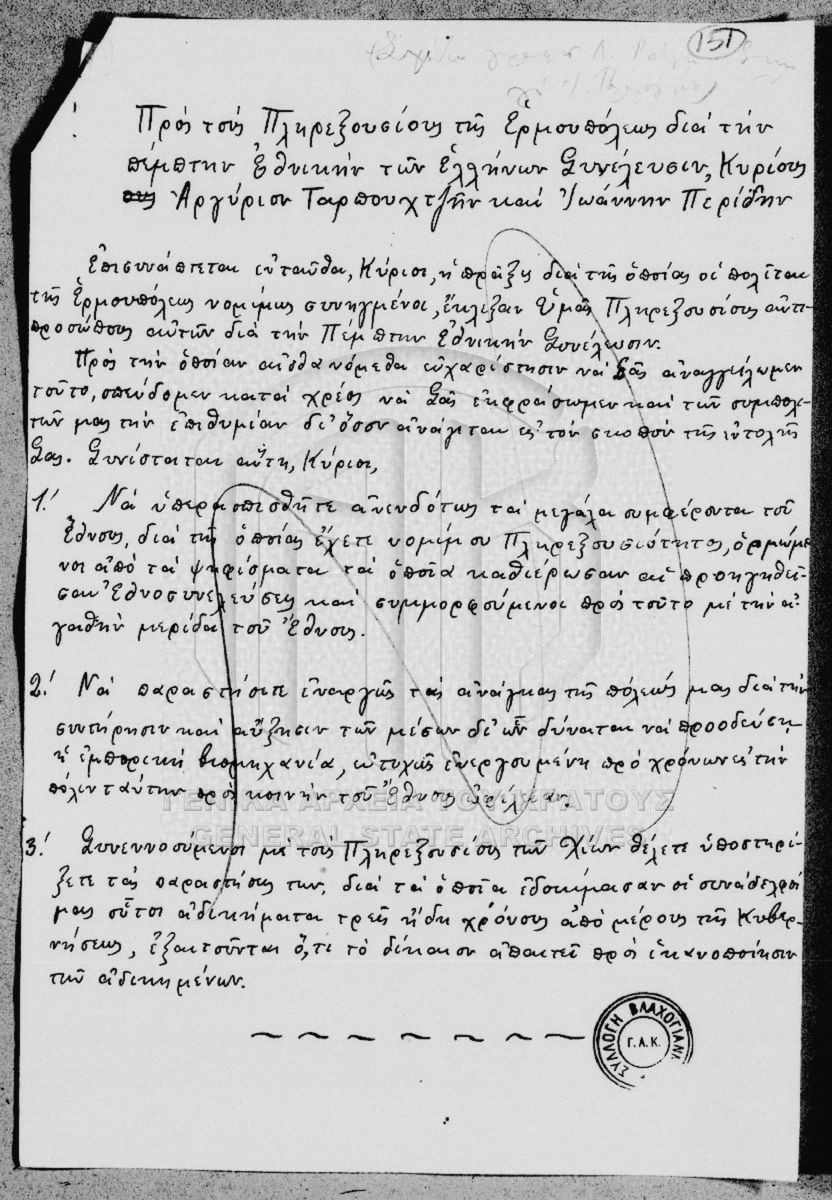 151
Πρός τούς Πληρεξουσίους τῆς Ἑρμουπόλεως διά τήν
πέμπτην Ἐθνικήν τῶν Ἑλλήνων Συνέλευσιν, Κυρίους
Ἀργύριον Ταρπουχτζῆν καί Ἰωάννην Περίδην
Ἐπισυνάπτεται ἐνταῦθα, Κύριοι, ἡ πρᾶξις διά τῆς ὁποίας οἱ πολῖται
τῆς Ἑρμουπόλεως νομίμως συνηγμένοι, ἔκλεξαν Ὑμᾶς Πληρεξουσίους ἀντι-
προσώπους αὐτῶν διά τήν Πέμπτην Ἐθνικήν Συνέλευσιν.
Πρός τήν ὁποίαν αἰσθανόμεθα εὐχαρίστησιν νά Σᾶς ἀναγγείλωμεν
τοῦτο, σπεύδομεν κατά χρέος νά Σᾶς ἐκφράσωμεν καί τῶν συμπολι-
τῶν μας τήν ἐπιθυμίαν δι' ὅσον ἀνάγεται εἰς τόν σκοπόν τῆς ἐντολῆς
Σας. Συνίσταται αὕτη, Κύριοι,
1.! Νά ὑπερασπισθῆτε ἀνενδότως τά μεγάλα συμφέροντα τοῦ
Ἔθνους, διά τῆς ὁποίας ἔχετε νομίμου Πληρεξουσιότητος, ὁρμώμε
νοι ἀπό τά ψηφίσματα τά ὁποῖα καθιέρωσαν αἱ προηγηθεῖ-
σαι Ἐθνοσυνελεύσεις καί συμμορφούμενοι πρός τοῦτο μέ τήν ἀ-
γαθήν μερίδα τοῦ Ἔθνους.
2.! Νά παραστήσετε ἐναργῶς τάς ἀνάγκας τῆς πόλεώς μας διά τήν
συντήρησιν καί αὔξησιν τῶν μέσων δι' ὧν δύναται νά προοδεύσῃ
ἡ ἐμπορική βιομηχανία, εὐτυχῶς ἐνεργουμένη πρό χρόνων εἰς τήν
πόλιν ταύτην πρός κοινήν τοῦ Ἔθνους ὠφέλειαν.
3.! Συνεννοούμενοι μέ τούς Πληρεξουσίους τῶν Χίων θέλετε ὑποστηρί-
ξετε τάς παραστήσεις των, διά τά ὁποῖα ἐδοκίμασαν οἱ συνάδελφοί
μας οὗτοι ἀδικήματα τρεῖς ἤδη χρόνους ἀπό μέρους τῆς Κυβερ-
νήσεως, ἐξαιτοῦνται ὅ,τι τό δίκαιον ἀπαιτεῖ πρός ἱκανοποίησιν
τῶν ἀδικημένων.
ΓΕΝΙΚΑ ΑΡΧΕΙΑ ΤΟΥ ΚΡΑΤΟΥΣ
GENERAL STATE ARCHIVES
ΣΥΛΛΟΓΗ ΒΛΑΧΟΓΙΑΝΝ
Γ.Α.Κ.